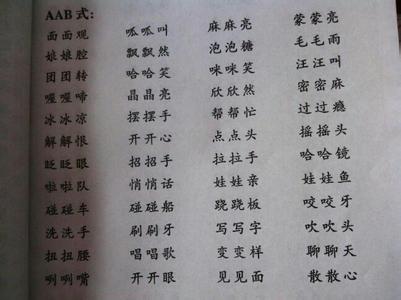 AAB 式:
面面观 呱呱叫 麻麻亮 蒙蒙亮
娘娘腔 飘飘然 泡泡糖 毛毛雨
团团转 哈哈笑 咪咪笑 汪汪叫
喔喔啼 晶晶亮 欣欣然 密密麻
冰冰凉 摆摆手 帮帮忙 过过瘾
解解恨 开开心 点点头 摇摇头
眨眨眼 招招手 拉拉手 哈哈镜
啦啦队 悄悄话 娃娃亲 娃娃鱼
碰碰车 碰碰船 跷跷板 咬咬牙
洗洗手 刷刷牙 写写字 吹吹头
扭扭腰 唱唱歌 变变样 聊聊天
咧咧嘴 开开眼 见见面 散散心